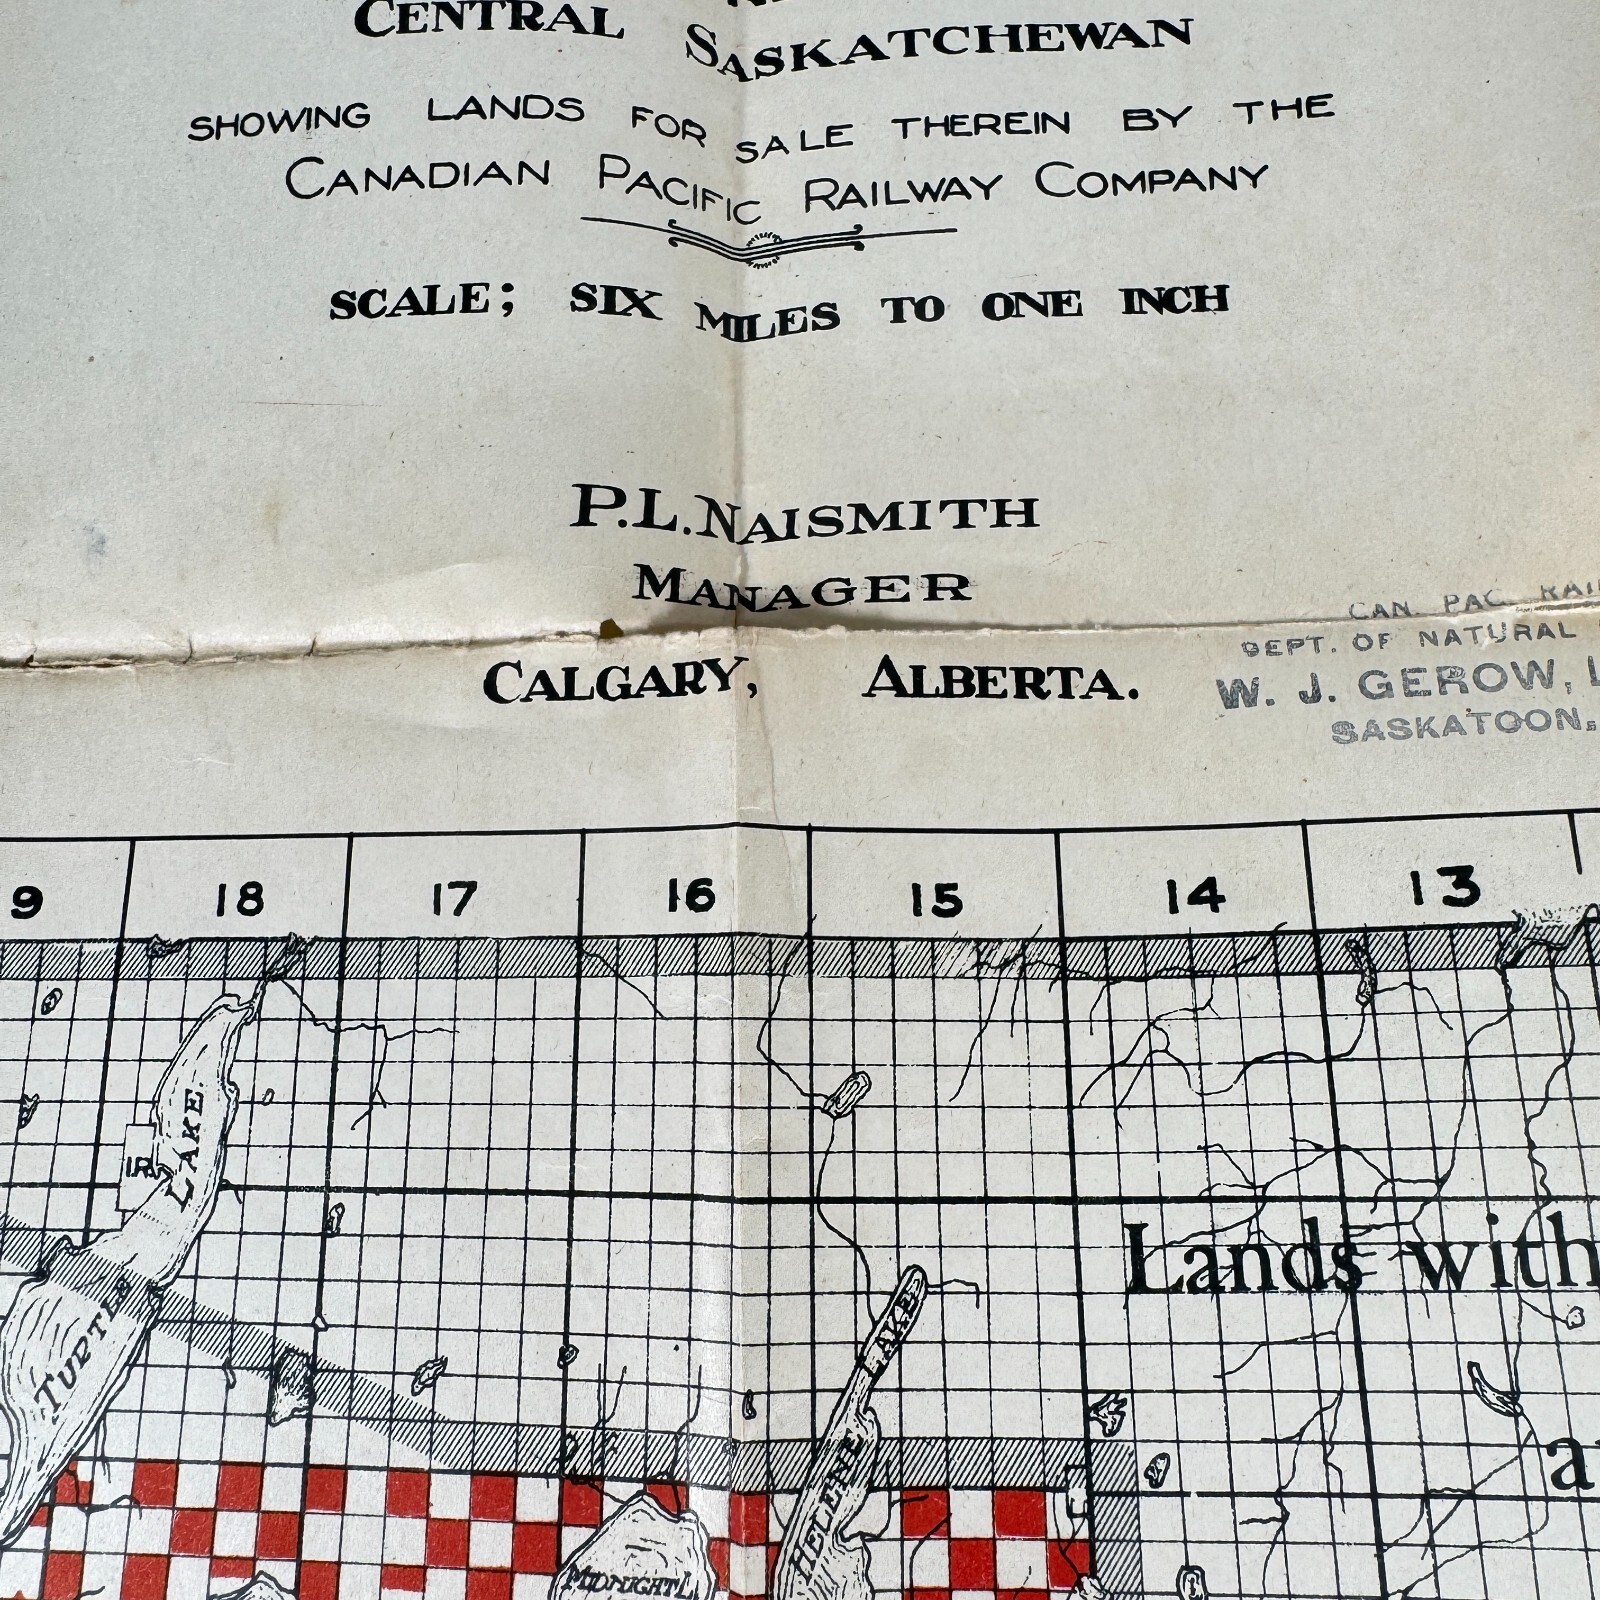 CENTRAL SASKATCHEWAN
SHOWING LANDS FOR SALE THEREIN BY THE
CANADIAN PACIFIC RAILWAY COMPANY
SCALE; SIX MILES TO ONE INCH
P.L. NAISMITH
MANAGER
CALGARY, ALBERTA.
CAN. PAC. RAI
DEPT. OF NATURAL
W. J. GEROW, L
SASKATOON.
9 18 17 16 15 14 13
LAKE.
I.R.
Lands with
TURTLE
LAKE
HELENE
a
MIDNIGHT L